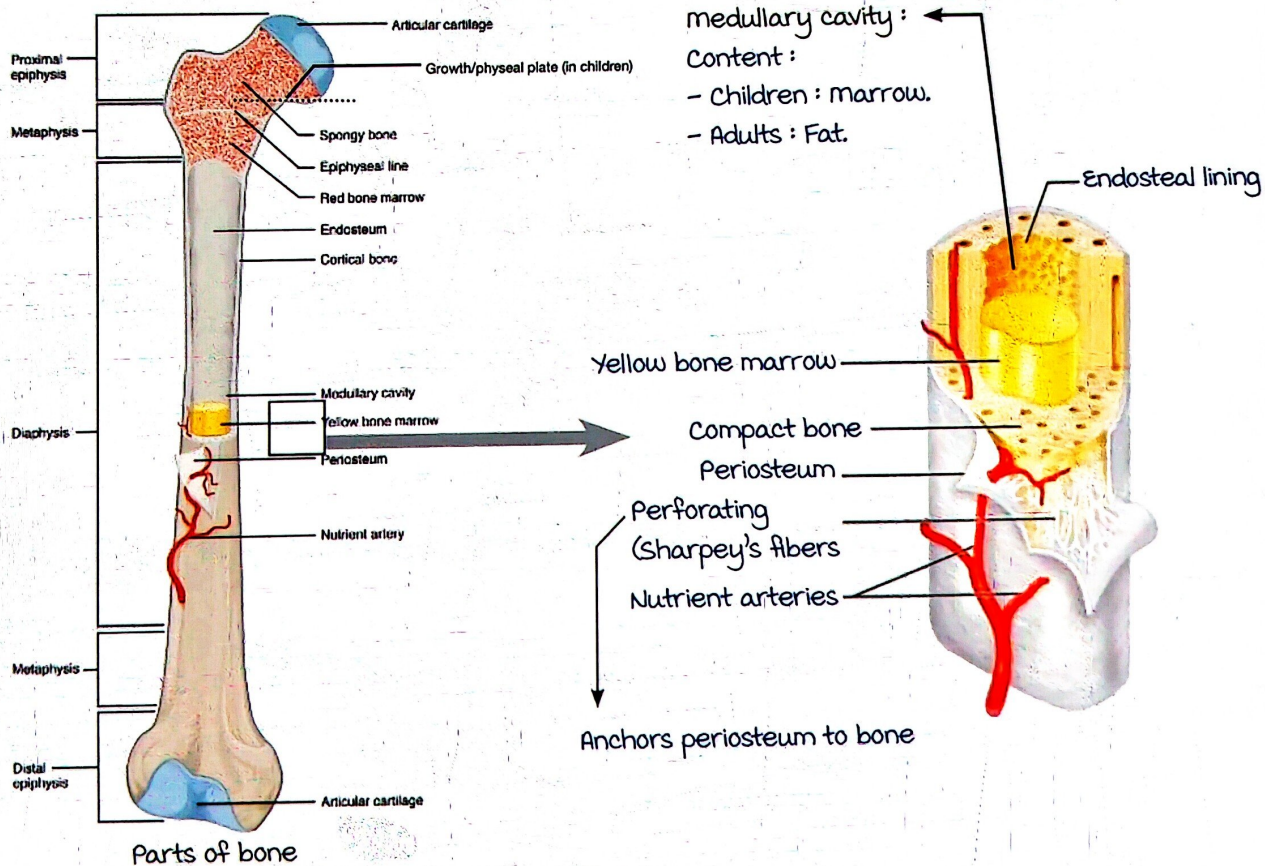 Proximal
epiphysis
Metaphysis
Diaphysis
Metaphysis
Distal
epiphysis
Articular cartilage
Growth/physeal plate (in children)
Spongy bone
Epiphyseal line
Red bone marrow
Endosteum
Cortical bone
Medullary cavity
Yellow bone marrow
Periosteum
Nutrient artery
Articular cartilage
Parts of bone
medullary cavity :
Content :
- Children : marrow.
- Adults : Fat.
Endosteal lining
Yellow bone marrow
Compact bone
Periosteum
Perforating
(Sharpey's fibers
Nutrient arteries
Anchors periosteum to bone